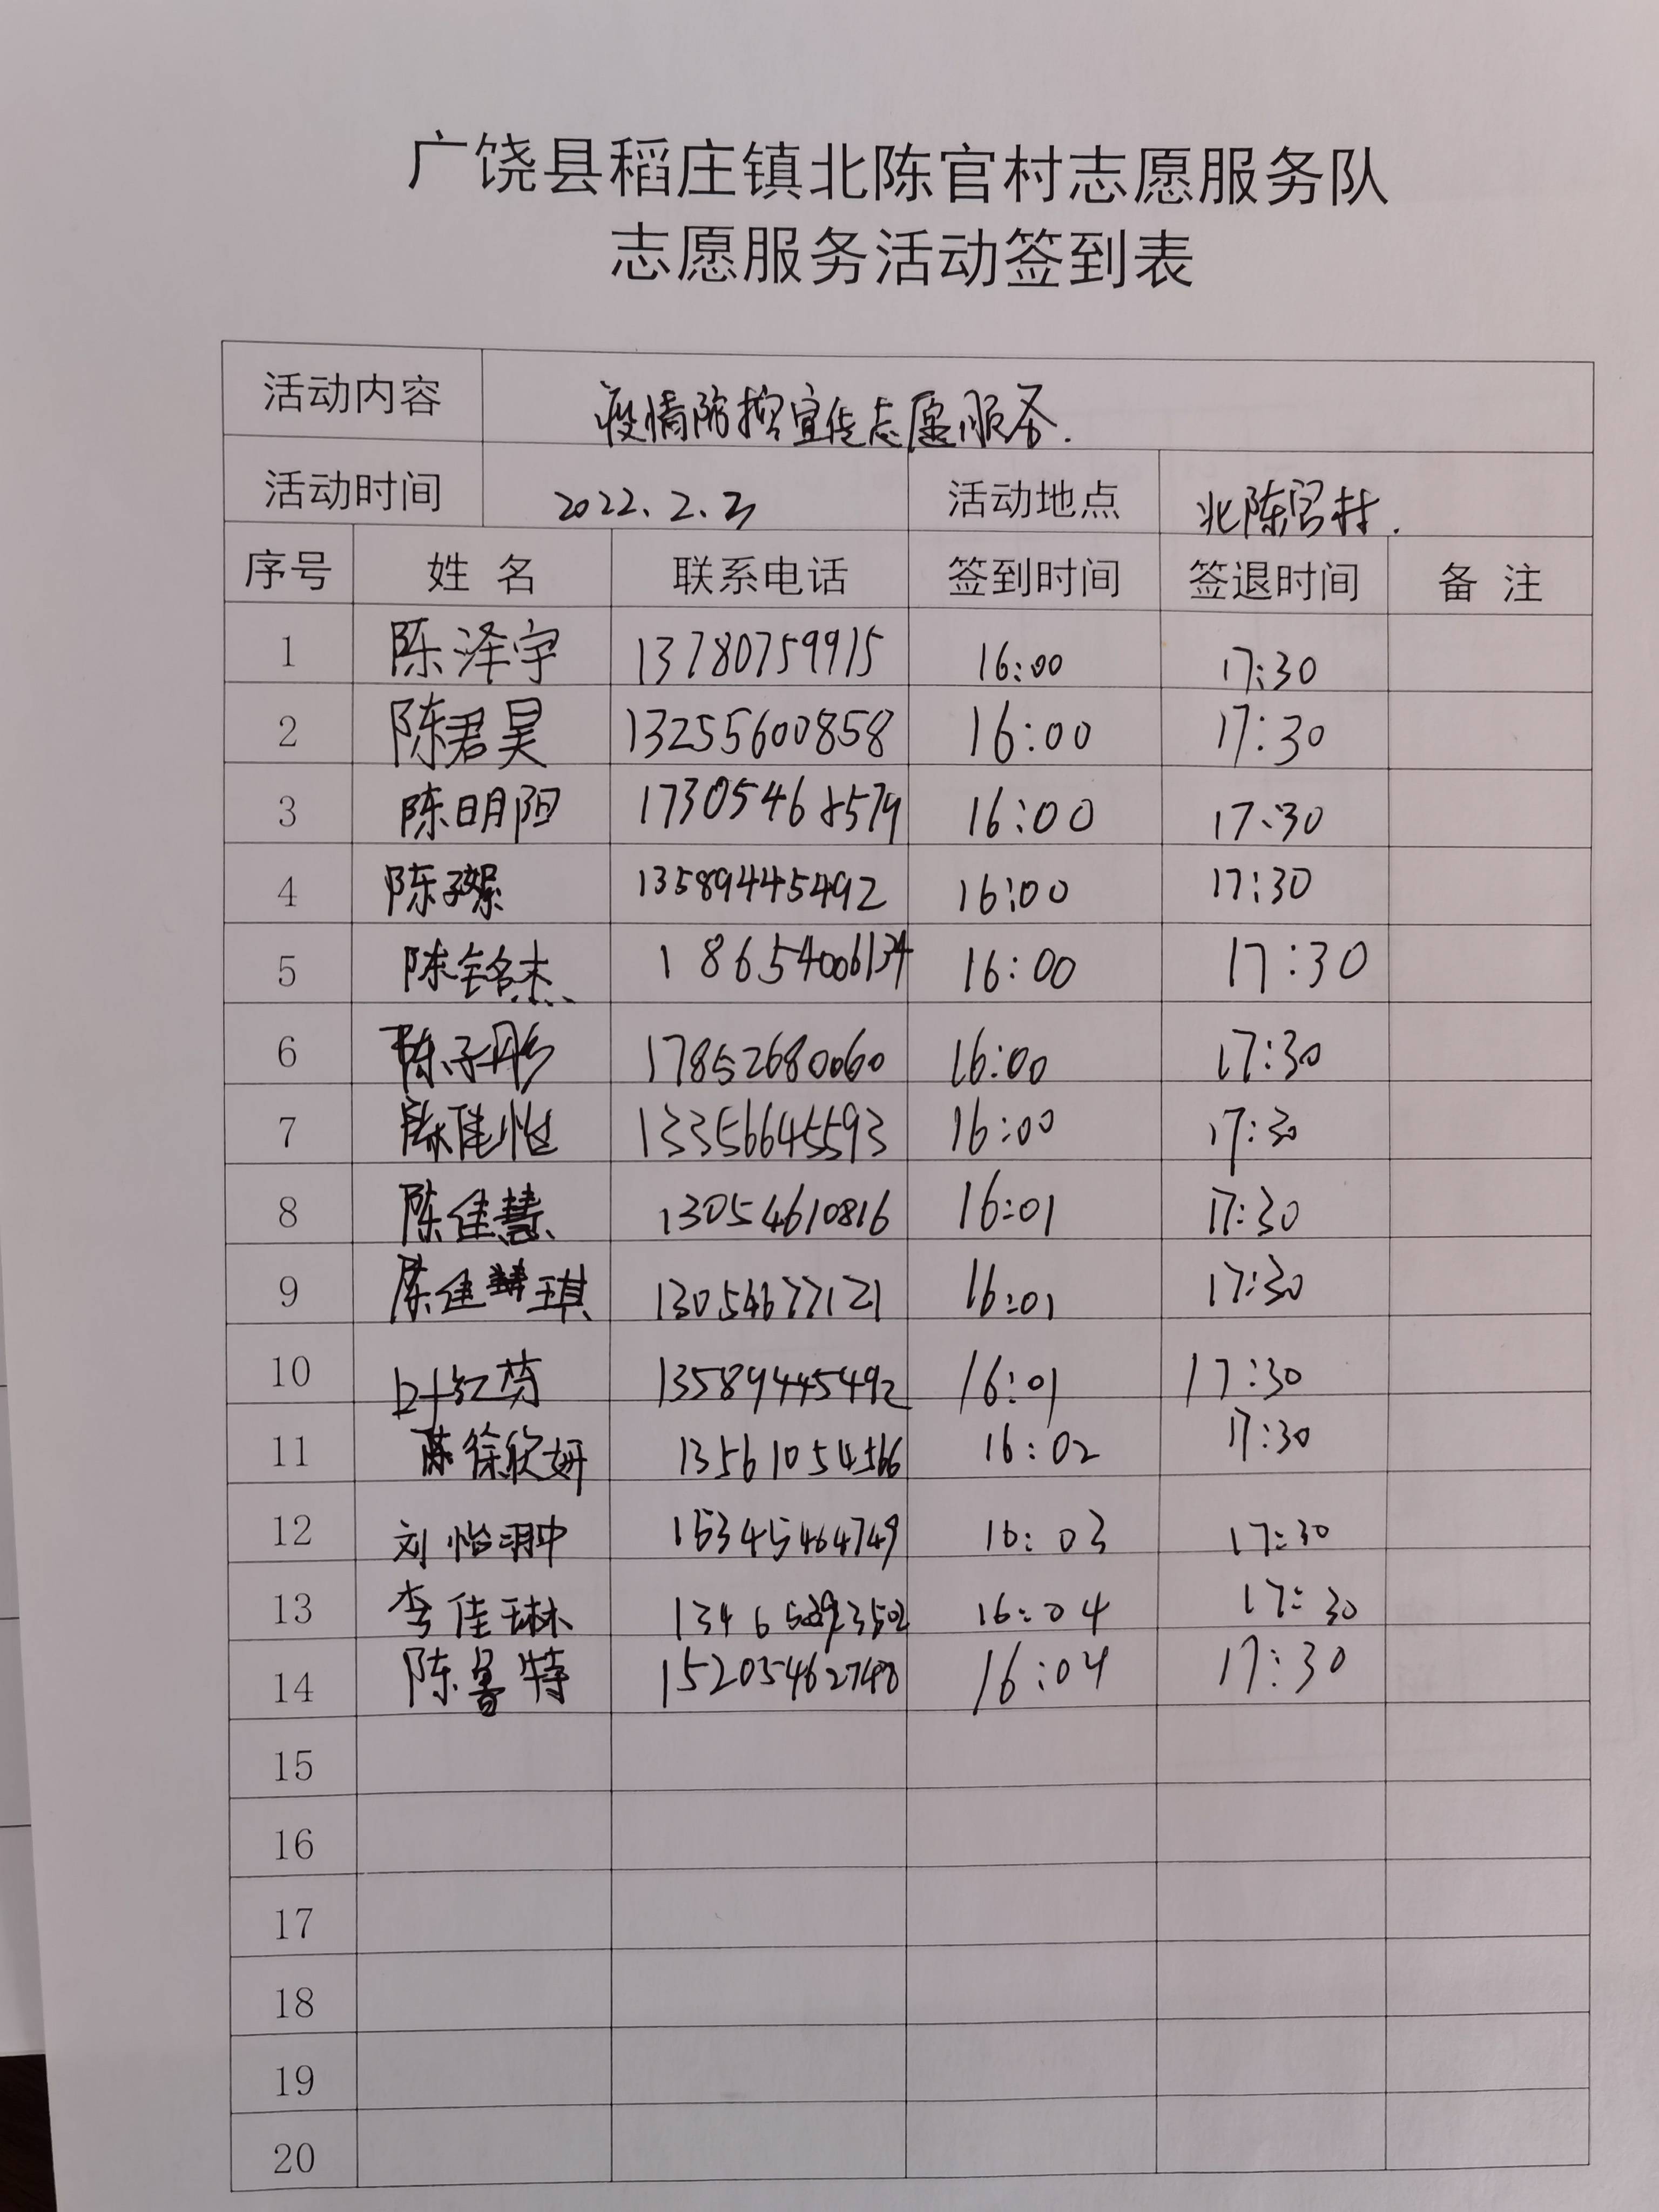 广饶县稻庄镇北陈官村志愿服务队
志愿服务活动签到表
活动内容 疫情防控宣传志愿服务.
活动时间 2022.2.3 活动地点 北陈官村.
序号 姓 名 联系电话 签到时间 签退时间 备 注
1 陈泽宇 13780759915 16:00 17:30
2 陈君昊 13255600858 16:00 17:30
3 陈明阳 17305468579 16:00 17:30
4 陈子 13589445492 16:00 17:30
5 陈铭杰 18654006134 16:00 17:30
6 陈子彤 17852680060 16:00 17:30
7 陈佳怡 13356645593 16:00 17:30
8 陈佳慧 13054610816 16:01 17:30
9 陈佳琪 13054677121 16:01 17:30
10 叶红芬 13589445492 16:01 17:30
11 徐欣妍 13561054566 16:02 17:30
12 刘怡翀 15345464749 16:03 17:30
13 李佳琳 16:04 17:30
14 陈鲁特 15205462748 16:04 17:30
15
16
17
18
19
20